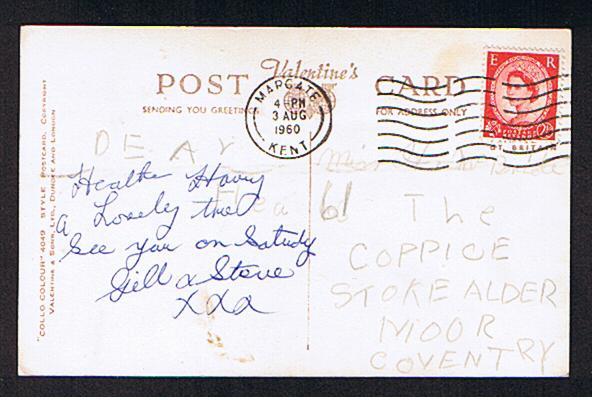 POST Valentine's CARD
SENDING YOU GREETINGS
FOR ADDRESS ONLY
MARGATE
4 PM
3 AUG
1960
KENT
E R
DEAR
Heather Having
a Lovely time
See you on Satudy
Gill & Steve
xxx
Miss
61 The
COPPICE
STOKE ALDER
MOOR
COVENTRY
"COLLO COLOUR" 4049 STYLE POSTCARD, COPYRIGHT
VALENTINE & SONS, LTD., DUNDEE AND LONDON